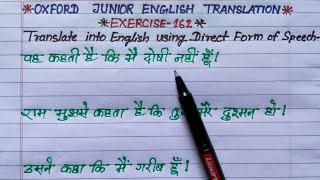 *OXFORD JUNIOR ENGLISH TRANSLATION*
*EXERCISE-162*
Translate into English using Direct Form of Speech-
वह कहती है कि मैं दोषी नहीं हूँ।
राम मुझसे कहता है कि तुम मेरे दुश्मन हो।
उसने कहा कि मैं गरीब हूँ।